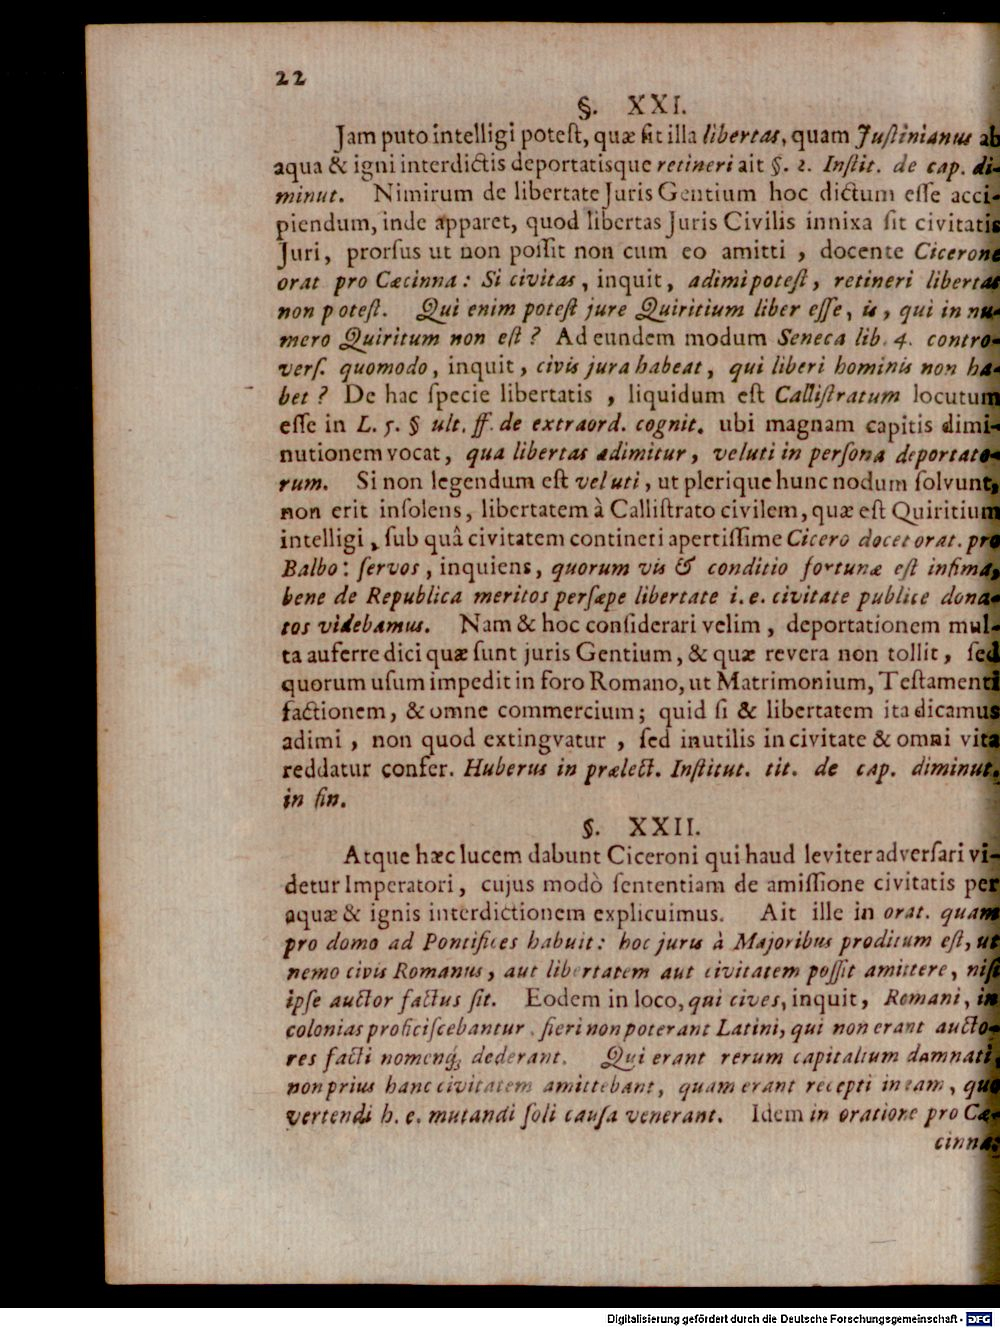 22
§. XXI.
Jam puto intelligi potest, quæ sit illa libertas, quam Justinianus ab
aqua & igni interdictis deportatisque retineri ait §. 2. Instit. de cap. di-
minut. Nimirum de libertate Juris Gentium hoc dictum esse acci-
piendum, inde apparet, quod libertas Juris Civilis innixa sit civitatis
Juri, prorsus ut non possit non cum eo amitti, docente Cicerone
orat pro Cæcinna: Si civitas, inquit, adimi potest, retineri libertas
non potest. Qui enim potest jure Quiritium liber esse, is, qui in nu-
mero Quiritum non est? Ad eundem modum Seneca lib. 4. contro-
vers. quomodo, inquit, civis jura habeat, qui liberi hominis non ha-
bet? De hac specie libertatis, liquidum est Callistratum locutum
esse in L. 5. § ult. ff. de extraord. cognit. ubi magnam capitis dimi-
nutionem vocat, qua libertas adimitur, veluti in persona deportato-
rum. Si non legendum est vel uti, ut plerique hunc nodum solvunt,
non erit insolens, libertatem à Callistrato civilem, quæ est Quiritium
intelligi, sub quâ civitatem contineri apertissime Cicero docet orat. pro
Balbo: servos, inquiens, quorum vis & conditio fortunæ est infima,
bene de Republica meritos persæpe libertate i. e. civitate publice dona-
tos videbamus. Nam & hoc considerari velim, deportationem mul-
ta auferre dici quæ sunt juris Gentium, & quæ revera non tollit, sed
quorum usum impedit in foro Romano, ut Matrimonium, Testamenti
factionem, & omne commercium; quid si & libertatem ita dicamus
adimi, non quod extingvatur, sed inutilis in civitate & omni vita
reddatur confer. Huberus in prælect. Institut. tit. de cap. diminut.
in fin.
§. XXII.
Atque hæc lucem dabunt Ciceroni qui haud leviter adversari vi-
detur Imperatori, cujus modò sententiam de amissione civitatis per
aquæ & ignis interdictionem explicuimus. Ait ille in orat. quam
pro domo ad Pontifices habuit: hoc juris à Majoribus proditum est, ut
nemo civis Romanus, aut libertatem aut civitatem possit amittere, nisi
ipse auctor factus sit. Eodem in loco, qui cives, inquit, Romani, in
colonias proficiscebantur. fieri non poterant Latini, qui non erant aucto-
res facti nomenq́; dederant. Qui erant rerum capitalium damnati,
non prius hanc civitatem amittebant, quam erant recepti in eam, quo
vertendi h. e. mutandi soli causa venerant. Idem in oratione pro Cæ-
cinna:
Digitalisierung gefördert durch die Deutsche Forschungsgemeinschaft - DFG